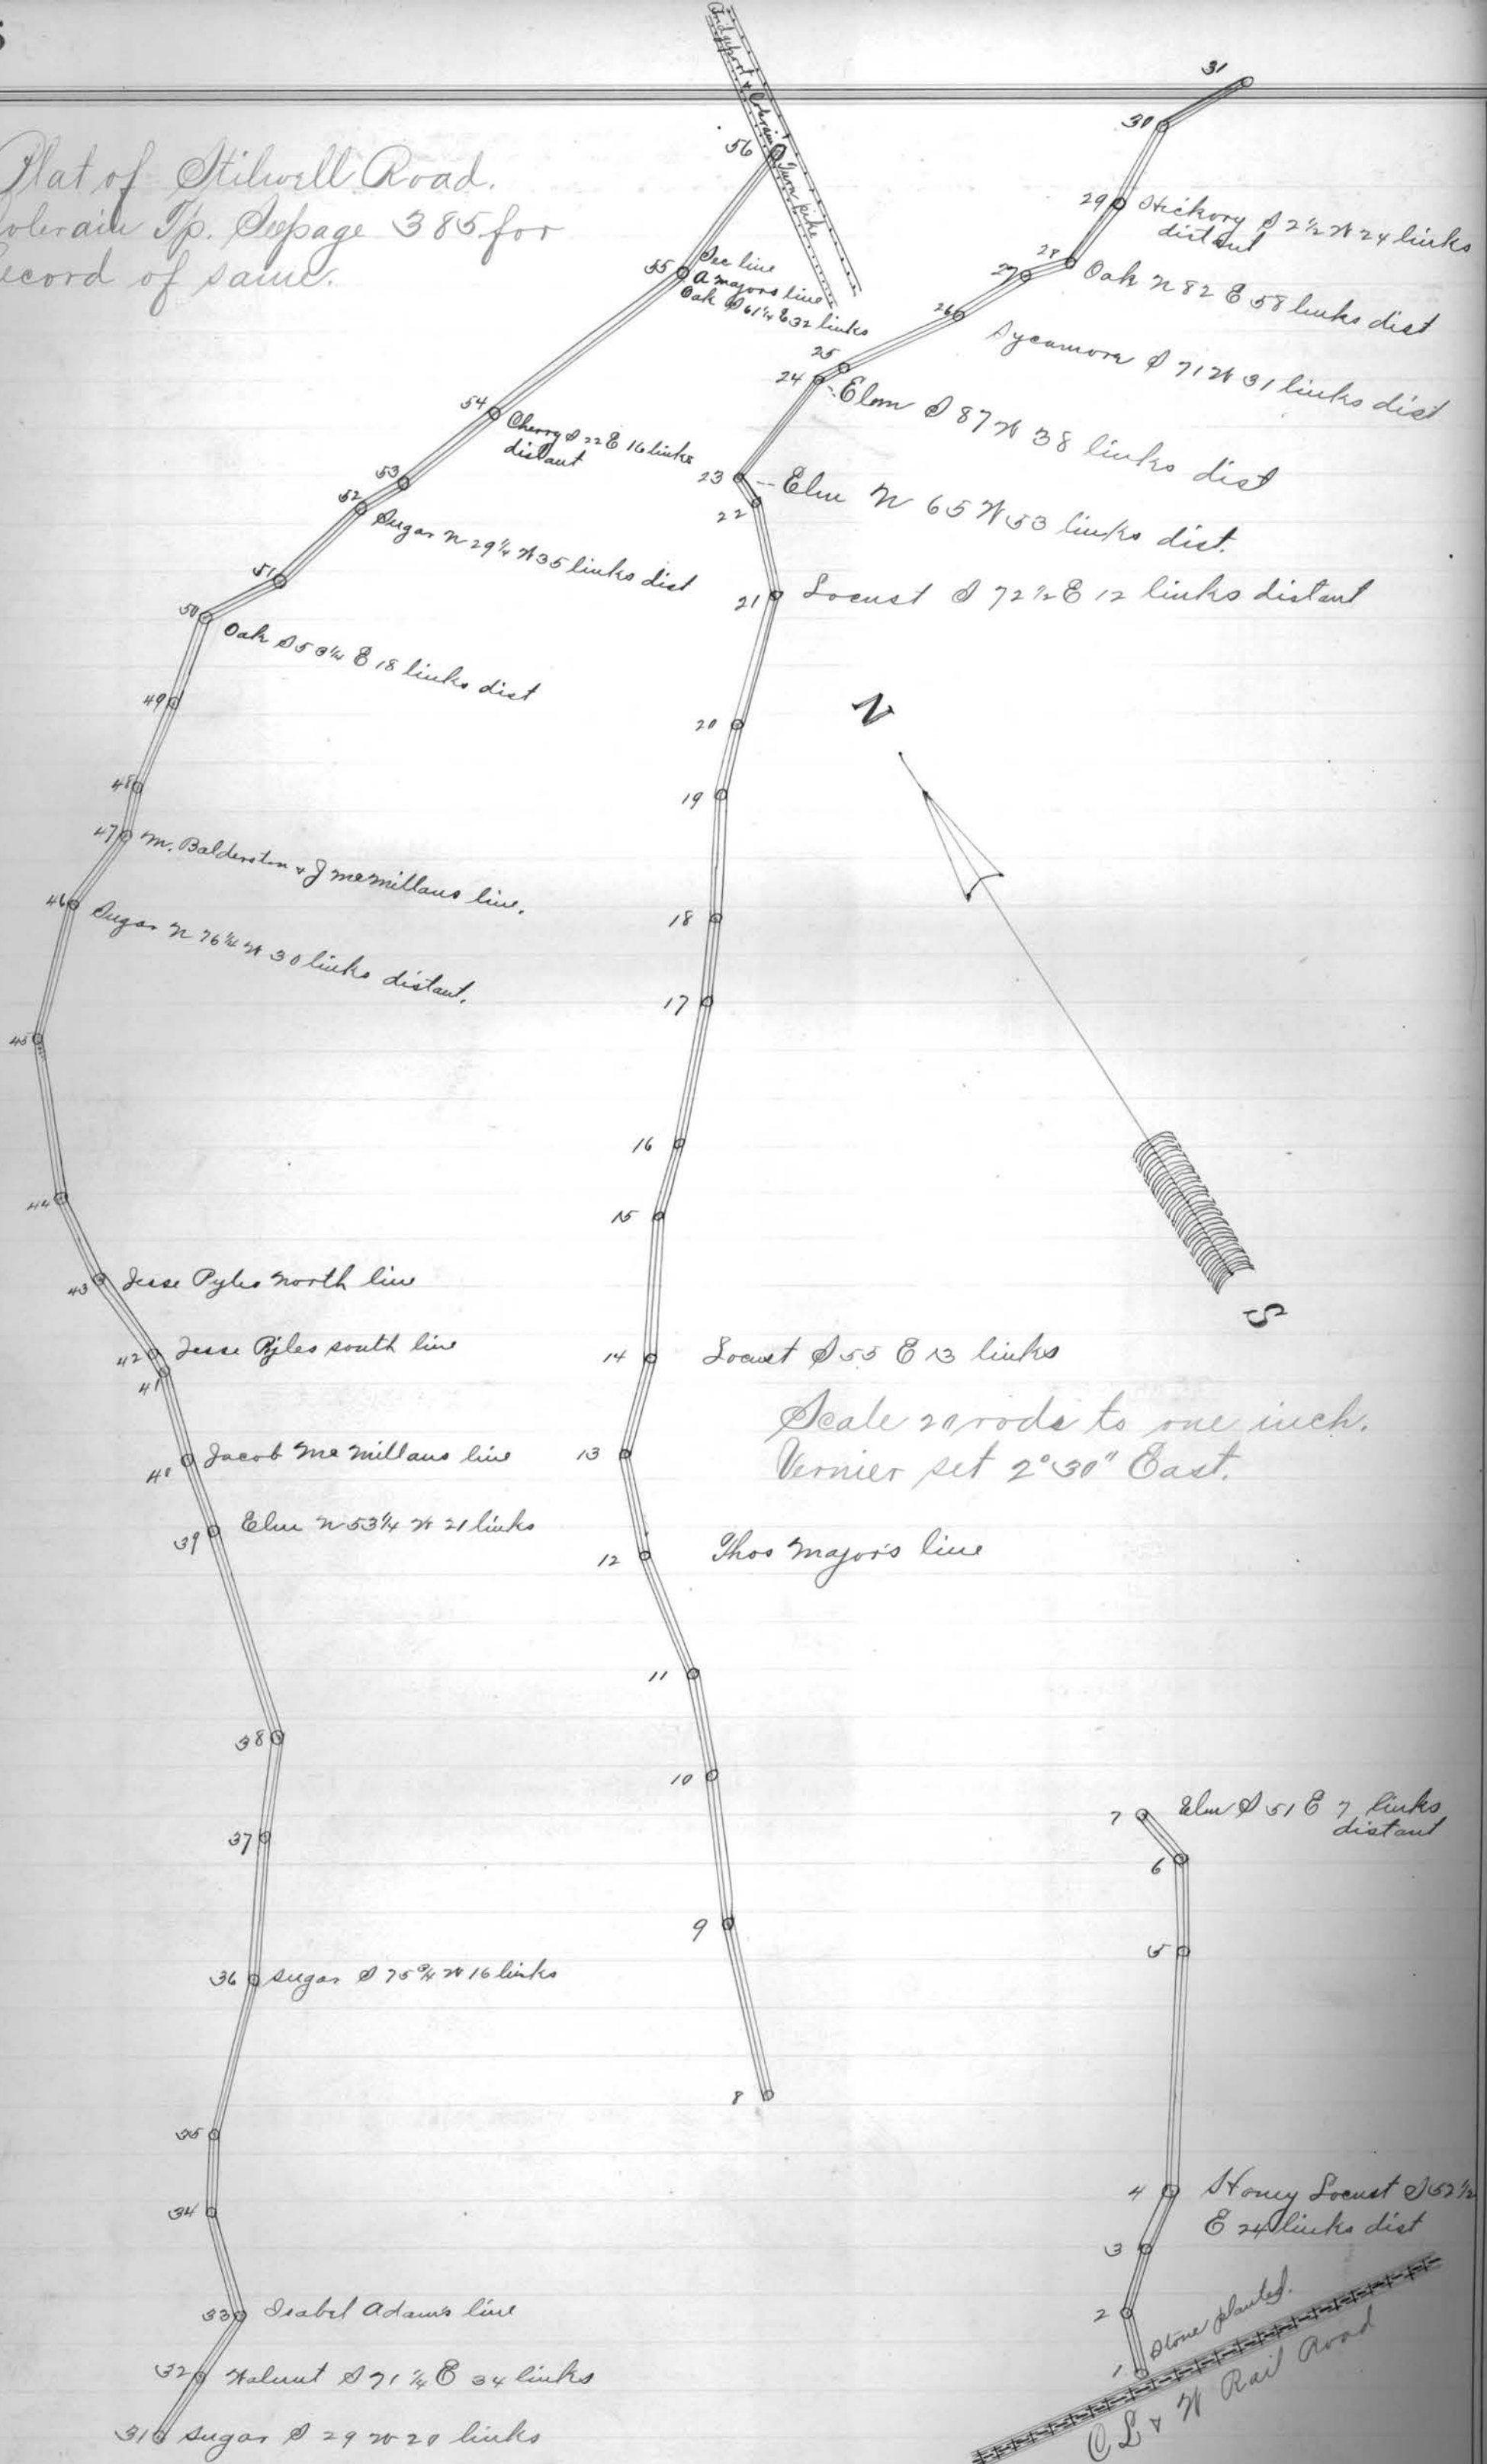 Plat of Stilwell Road.
olerain Tp. See page 385 for
ecord of same.
Bridgeport & Colerain Turn pike
56
55 Sec line
A majors line
Oak S 61 1/4 E 32 links
54 Cherry S 22 E 16 links
distant
53
52 Sugar N 29 1/4 W 35 links dist
51
50 Oak S 50 1/4 E 18 links dist
49
48
47 M. Balderston & J McMillans line.
46 Sugar N 76 1/4 W 30 links distant.
45
44
43 Jesse Pyles north line
42 Jesse Pyles south line
41
40 Jacob McMillans line
39 Elm N 53 1/4 W 21 links
38
37
36 Sugar S 75 3/4 W 16 links
35
34
33 Isabel Adams line
32 Walnut S 71 1/4 E 34 links
31 Sugar S 29 W 20 links
31
30
29 Hickory S 2 1/2 W 24 links
distant
28 Oak N 82 E 58 links dist
27
26 Sycamore S 71 W 31 links dist
25
24 Elm S 87 W 38 links dist
23 Elm N 65 W 53 links dist.
22
21 Locust S 72 1/2 E 12 links distant
20
19
18
17
16
15
14 Locust S 55 E 13 links
13
12 Thos Major's line
11
10
9
8
N
S
Scale 20 rods to one inch.
Vernier set 2°30" East.
7 Elm S 51 E 7 links
distant
6
5
4 Honey Locust S 52 1/2
E 24 links dist
3
2
1 Stone planted.
C L & W Rail Road